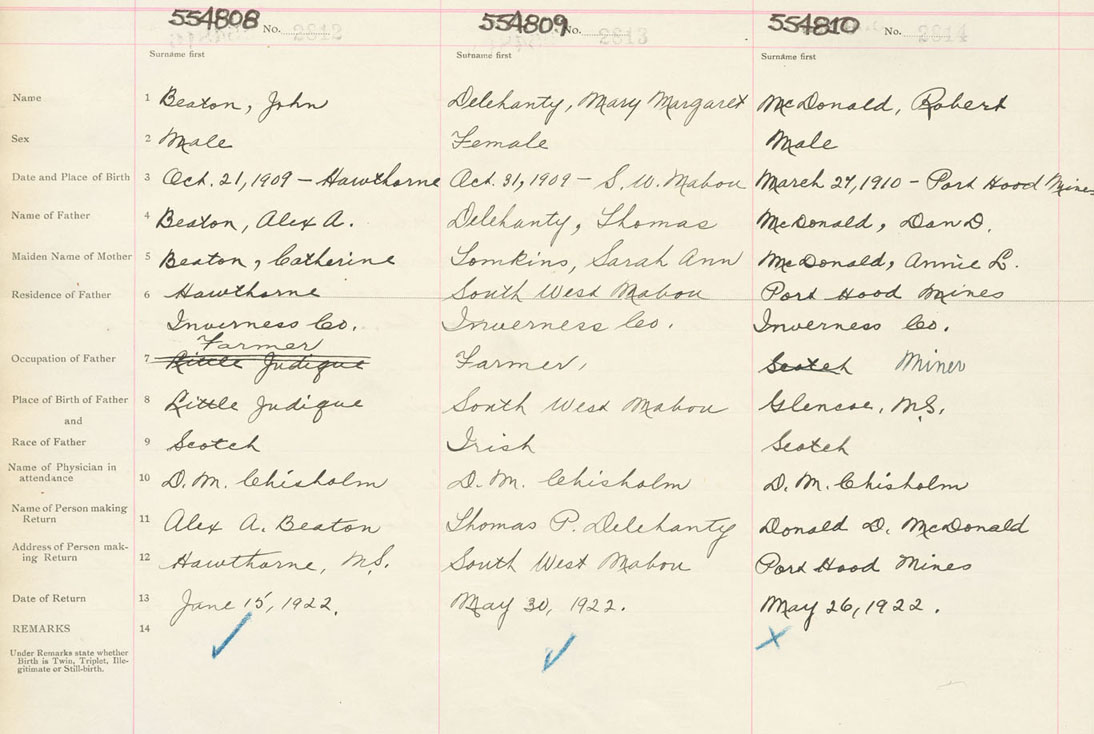 554808 No. 2812 554809 No. 2813 554810 No. 2814
Surname first Surname first Surname first
Name 1 Beaton, John Delehanty, Mary Margaret McDonald, Robert
Sex 2 Male Female Male
Date and Place of Birth 3 Oct. 21, 1909 - Hawthorne Oct. 31, 1909 - S. W. Mabou March 27, 1910 - Port Hood Mines
Name of Father 4 Beaton, Alex A. Delehanty, Thomas McDonald, Dan D.
Maiden Name of Mother 5 Beaton, Catherine Tomkins, Sarah Ann McDonald, Annie L.
Residence of Father 6 Hawthorne South West Mabou Port Hood Mines
Inverness Co. Inverness Co. Inverness Co.
Farmer
Occupation of Father 7 Little Judique Farmer, Scotch Miner
Place of Birth of Father 8 Little Judique South West Mabou Glencoe, N.S.
and
Race of Father 9 Scotch Irish Scotch
Name of Physician in
attendance 10 D. M. Chisholm D. M. Chisholm D. M. Chisholm
Name of Person making
Return 11 Alex A. Beaton Thomas P. Delehanty Donald D. McDonald
Address of Person mak-
ing Return 12 Hawthorne, N.S. South West Mabou Port Hood Mines
Date of Return 13 June 15, 1922. May 30, 1922. May 26, 1922.
REMARKS 14
Under Remarks state whether
Birth is Twin, Triplet, Ille-
gitimate or Still-birth.